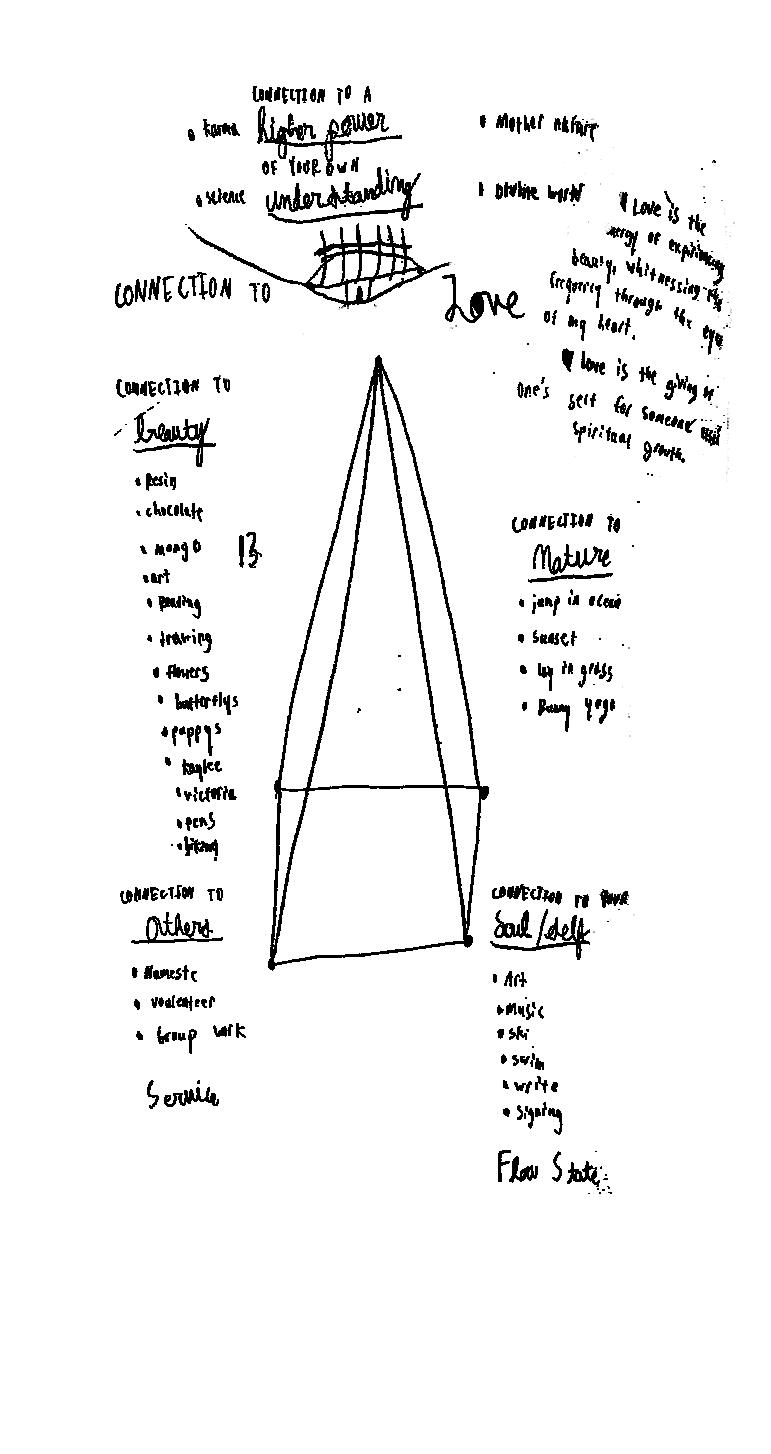 CONNECTION TO A
• karma
higher power
• Mother nature
OF YOUR OWN
• science
understanding
• Divine
CONNECTION TO
Love
Love is the
energy of expiriencing
beauty, whitnessing
frequency through the eyes
of my heart.
Love is the giving of
one's self for someone
spiritual growth.
CONNECTION TO
Beauty
• Resin
• chocolate
• mango
13
• art
•
•
• flowers
• butterflys
• puppys
• kaylee
• victoria
• pens
•
CONNECTION TO
Nature
• jump in ocean
• sunset
• lay in grass
• yoga
CONNECTION TO
Others
• Nameste
• voulenteer
• Group work
Service
CONNECTION TO YOUR
Soul/self
• Art
• Music
• ski
• swim
• write
• signing
Flow State